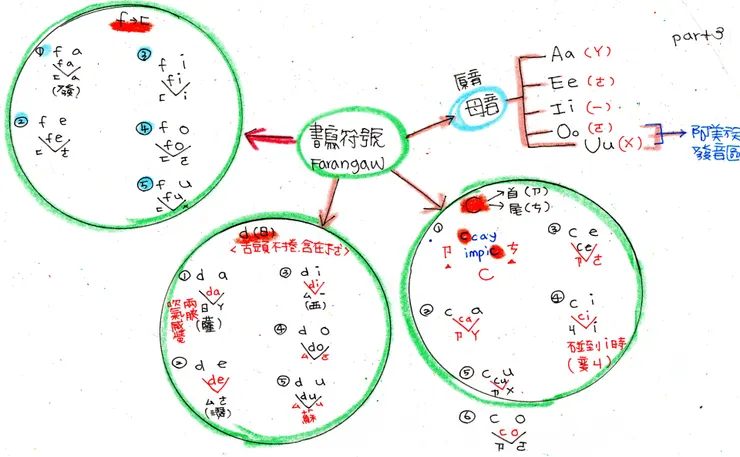 part 3
書寫符號
Farangaw
原音
母音
Aa (ㄚ)
Ee (ㄜ)
Ii (一)
Oo (ㄛ)
Uu (ㄨ)
阿美族
發音區
f→ㄈ
① f a
fa
ㄈ ㄚ
(發)
② f e
fe
ㄈ ㄜ
③ f i
fi
ㄈ i
④ f o
fo
ㄈ ㄛ
⑤ f u
fu
ㄈ ㄨ
d (日)
<舌頭不捲.含在
① d a
da
日 ㄚ
(薩)
兩腮
吹氣感覺
② d e
de
ㄙ ㄜ
③ d i
di
ㄙ 一
(西)
④ d o
do
ㄙ ㄛ
⑤ d u
du
ㄙ ㄨ
蘇
首 (ㄗ)
尾 (ㄘ)
① ccay
impic
ㄗ ㄘ
C
② c a
ca
ㄗ ㄚ
③ c e
ce
ㄗ ㄜ
④ c i
ci
ㄐ i
碰到i時
(變ㄐ)
⑤ c u
cu
ㄗ ㄨ
⑥ c o
co
ㄗ ㄛ